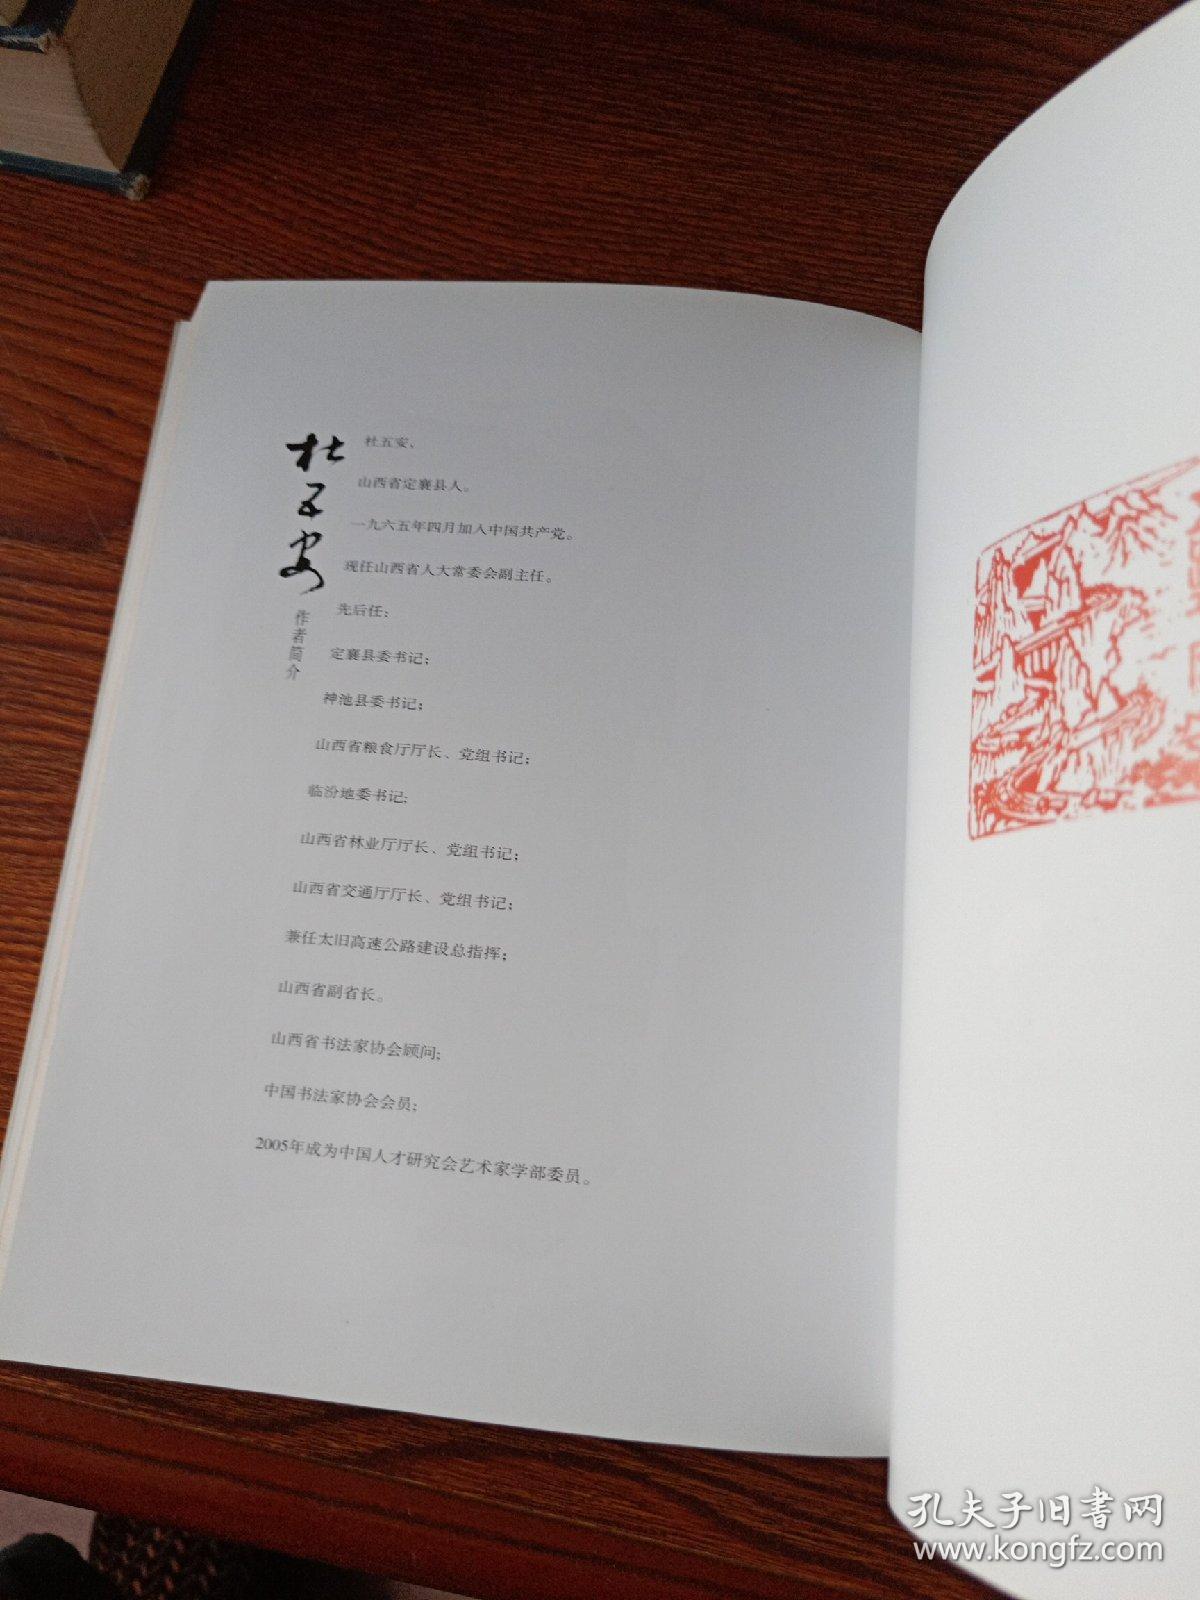 杜五安
作者简介
杜五安、
山西省定襄县人。
一九六五年四月加入中国共产党。
现任山西省人大常委会副主任。
先后任：
定襄县委书记；
神池县委书记；
山西省粮食厅厅长、党组书记；
临汾地委书记；
山西省林业厅厅长、党组书记；
山西省交通厅厅长、党组书记；
兼任太旧高速公路建设总指挥；
山西省副省长。
山西省书法家协会顾问；
中国书法家协会会员；
2005年成为中国人才研究会艺术家学部委员。
孔夫子旧书网
www.kongfz.com